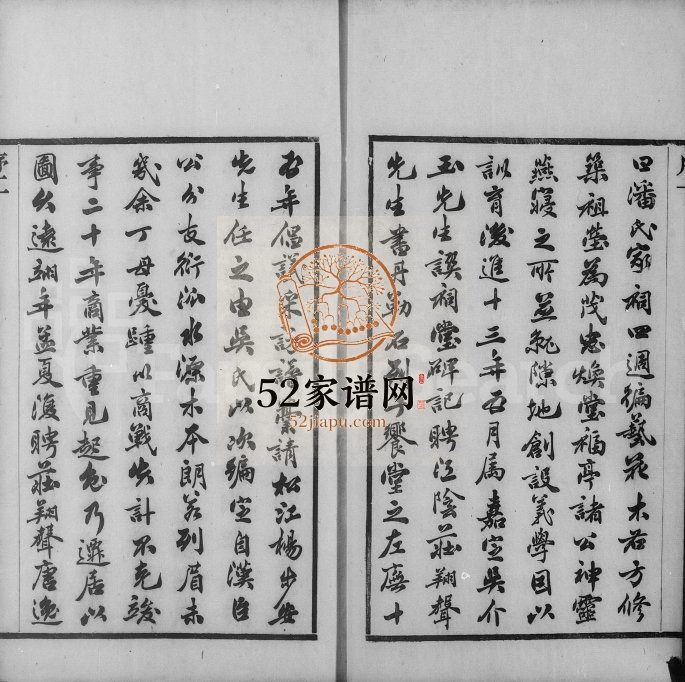 曰潘氏家祠四週徧藝花木右方修
築祖塋為茂忠煥堂福亭諸公神靈
燕寢之所並就隙地創設義學因以
訓育後進十三年五月屬嘉定吳介
玉先生譔祠堂碑記聘江陰莊翔聲
先生書丹勒石列饗堂之左廡十
五年倡議採訪請松江楊步
先生任之由吳氏以次編定自漢臣
公分支衍派水源木本朗若列眉未
幾余丁母憂踵以商戰失計不克竣
事二十年商業重見起色乃遷居以
圖久遠翔年孟夏復聘莊翔聲唐逸
52家谱网
52jiapu.com